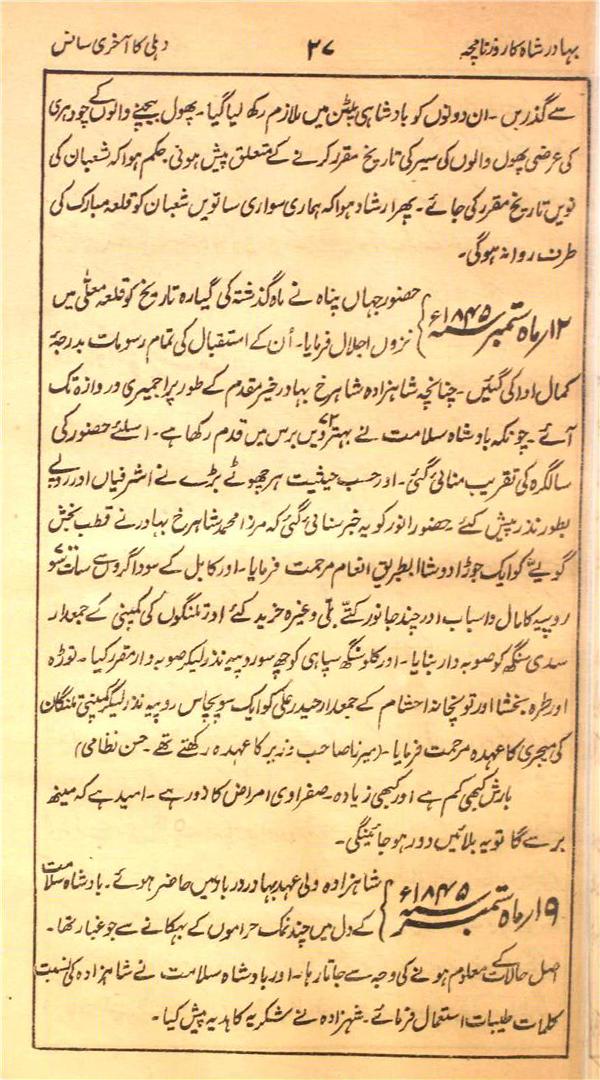 بہادر شاہ کا روزنامچہ ۳۷ دہلی کا آخری سانس
سے گذریں۔ ان دونوں کو بادشاہی پلٹن میں ملازم رکھ لیا گیا۔ پھول بیچنے والوں کے چودہری
کی عرضی پھول والوں کی سیر کی تاریخ مقرر کرنے کے متعلق پیش ہوئی حکم ہوا کہ شعبان کی
نویں تاریخ مقرر کی جائے۔ پھر ارشاد ہوا کہ ہماری سواری ساتویں شعبان کو قلعہ مبارک کی
طرف روانہ ہوگی۔
۱۲ر ماہ ستمبر ۱۸۴۵ء } حضور جہاں پناہ نے ماہ گذشتہ کی گیارہ تاریخ کو قلعہ معلّٰی میں
نزول اجلال فرمایا۔ اُن کے استقبال کی تمام رسومات بدرجۂ
کمال ادا کی گئیں۔ چنانچہ شاہزادہ شاہرخ بہادر خیر مقدم کے طور پر اجمیری دروازہ تک
آئے۔ چونکہ بادشاہ سلامت نے بہتر ۷۲ ویں برس میں قدم رکھا ہے۔ اسلئے حضور کی
سالگرہ کی تقریب منائی گئی۔ اور حسب حیثیت ہر چھوٹے بڑے نے اشرفیاں اور روپے
بطور نذر پیش کئے حضور انور کو یہ خبر سنائی گئی کہ مرزا محمد شاہرخ بہادر نے قطب بخش
گویےّ کو ایک جوڑا دوشالا بطریق انعام مرحمت فرمایا۔ اور کابل کے سوداگروں سے سات سو
روپیہ کا مال و اسباب اور چند جانور کتّے بلّی وغیرہ خرید کئے اور تلنگوں کی کمپنی کے جمعدار
سدی سنگھ کو صوبہ دار بنایا۔ اور کلو سنگھ سپاہی کو چھ سو روپیہ نذر لیکر صوبہ دار مقرر کیا۔ توڑہ
اور طرہ بخشا اور توپخانہ احتشام کے جمعدار حیدر علی کو ایک سو پچاس روپیہ نذر لیکر کمپنی تلنگان
کی میجری کا عہدہ مرحمت فرمایا۔ (میرزا صاحب وزیر کا عہدہ رکھتے تھے۔ حسن نظامی)
بارش کبھی کم ہے اور کبھی زیادہ۔ صفراوی امراض کا زور ہے۔ امید ہے کہ مینھ
برسے گا تو یہ بلائیں دور ہو جائینگی۔
۱۹ر ماہ ستمبر ۱۸۴۵ء } شاہزادہ ولی عہد بہادر دربار میں حاضر ہوئے۔ بادشاہ سلامت
کے دل میں چند نمک حراموں کے بہکانے سے جو غبار تھا۔
اصل حالات کے معلوم ہونے کی وجہ سے جاتا رہا۔ اور بادشاہ سلامت نے شاہزادہ کی نسبت
کلمات طیبات استعمال فرمائے۔ شہزادہ نے شکریہ کا ہدیہ پیش کیا۔